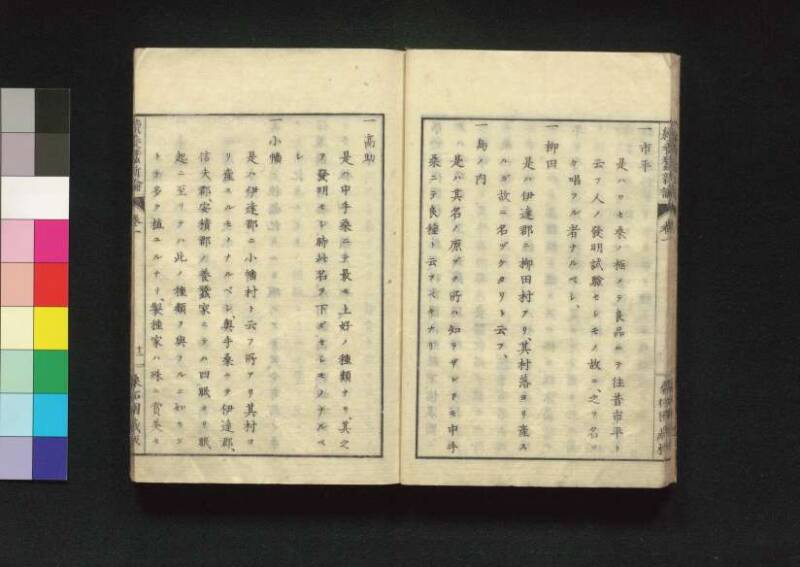 一市平
是ハワセ桑ノ極メテ良品ニテ往昔市平ト
云フ人ノ發明試驗セシモノ故ニ之ヲ名
ケ唱フル者ナルベシ、
一柳田
是ハ伊達郡ニ柳田村アリ、其村落ヨリ産ス
ルガ故ニ名ヅケタリト云フ、
一島ノ内
是ハ其名ノ原ヅク所ハ知ラザレドモ中手
桑ニテ良種ト云フベキナリ
一高助
是ハ中手桑ニテ最モ上好ノ種類ナリ、其之
ヲ發明セシ時此名ヲ下ダセシモノナルベ
シ
一小幡
是ハ伊達郡ニ小幡村ト云フ所アリ其村ヨ
リ産スルモノナルベシ、奥手桑ニテ伊達郡、
信夫郡、安積郡ノ養蠶家ニテハ四眠ヨリ眠
起ニ至リテハ此ノ種類ヲ與フルニ如カズ
トテ多ク植ユルナリ、製種家ハ殊ニ賞美セ
卷一